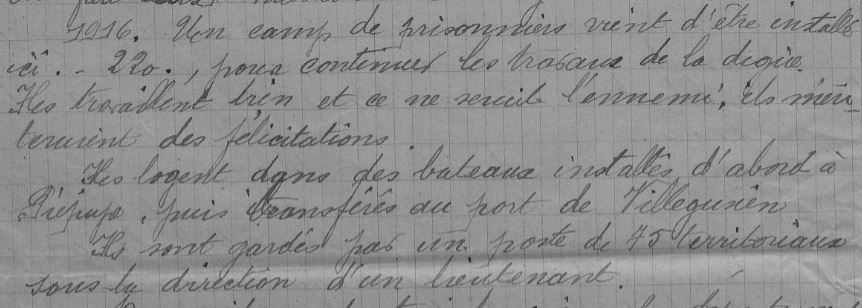 1916. Un camp de prisonniers vient d'être installé
ici. - 220., pour continuer les travaux de la digue.
Ils travaillent bien et ce ne serait l'ennemi, ils méri
teraient des félicitations.
Ils logent dans des bateaux installés d'abord à
Piépape, puis transférés au port de Villegusien
Ils sont gardés par un poste de 75 territoriaux
sous la direction d'un lieutenant.